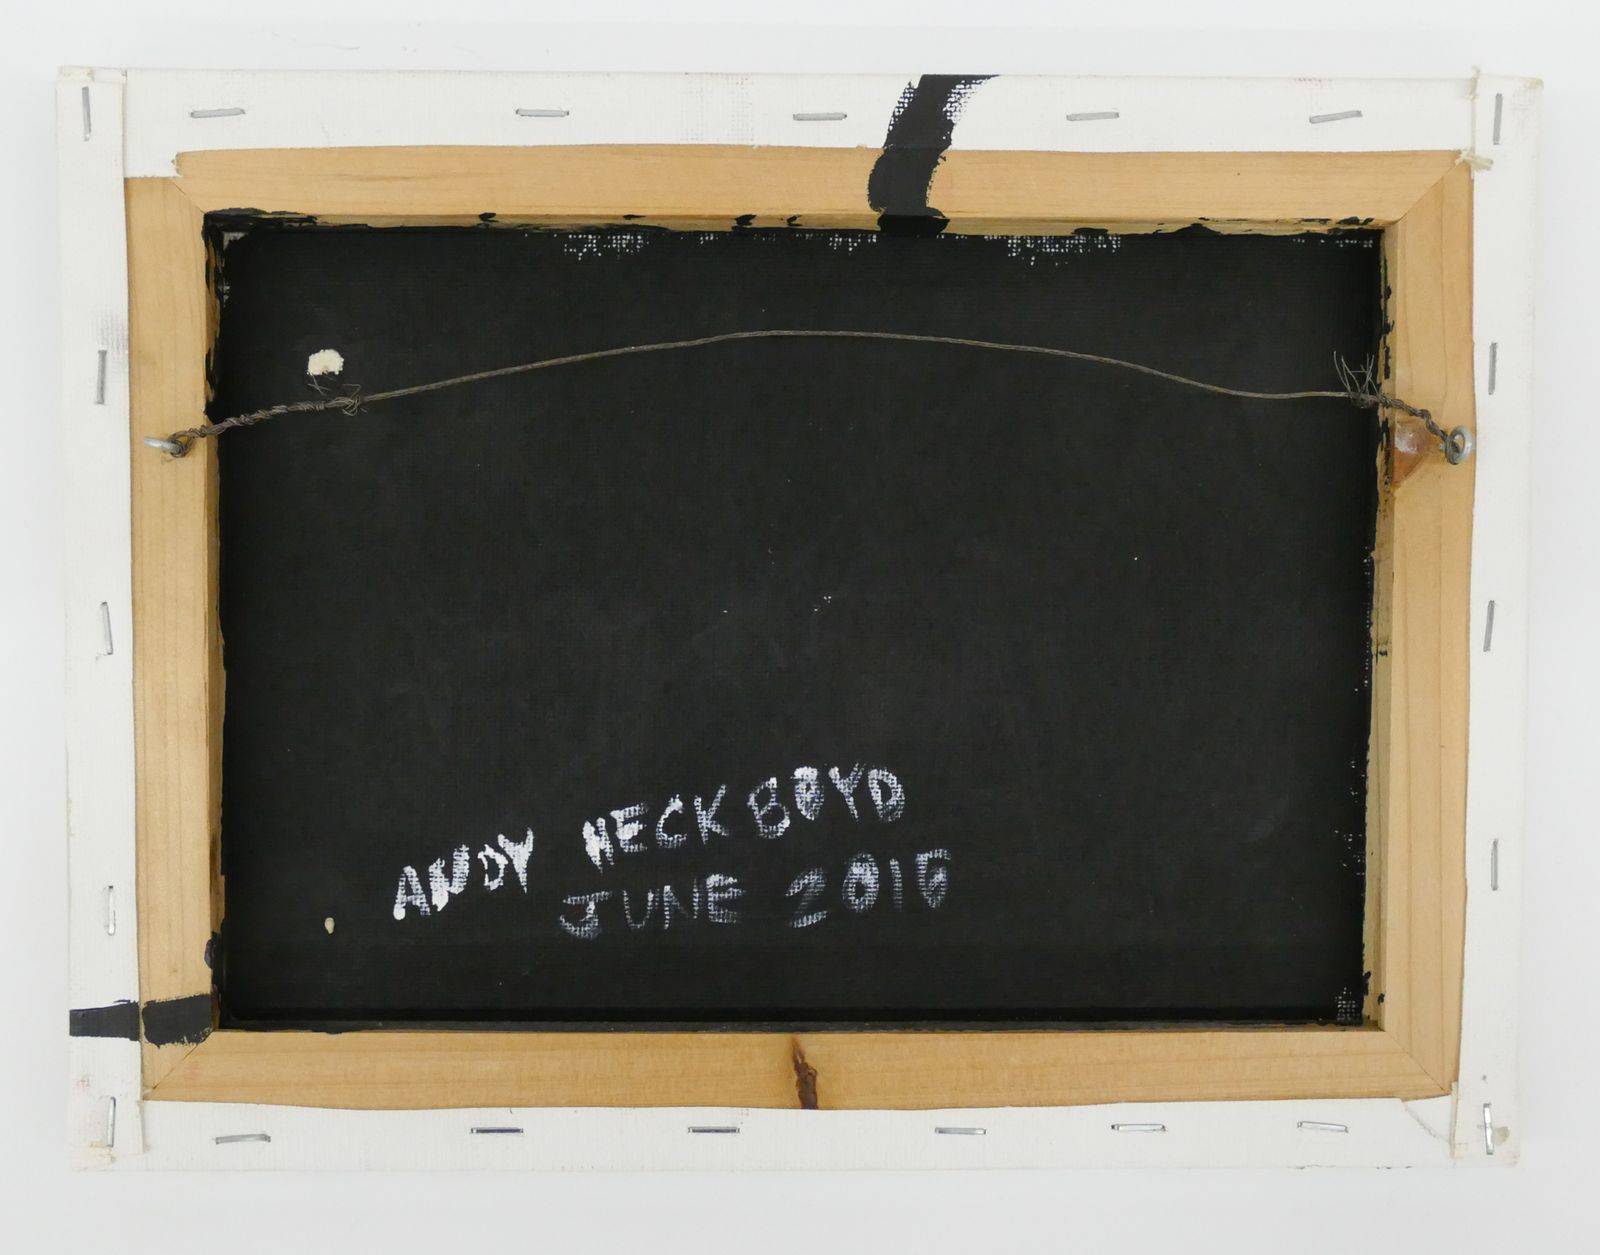 ANDY NECKBOYD
JUNE 2010